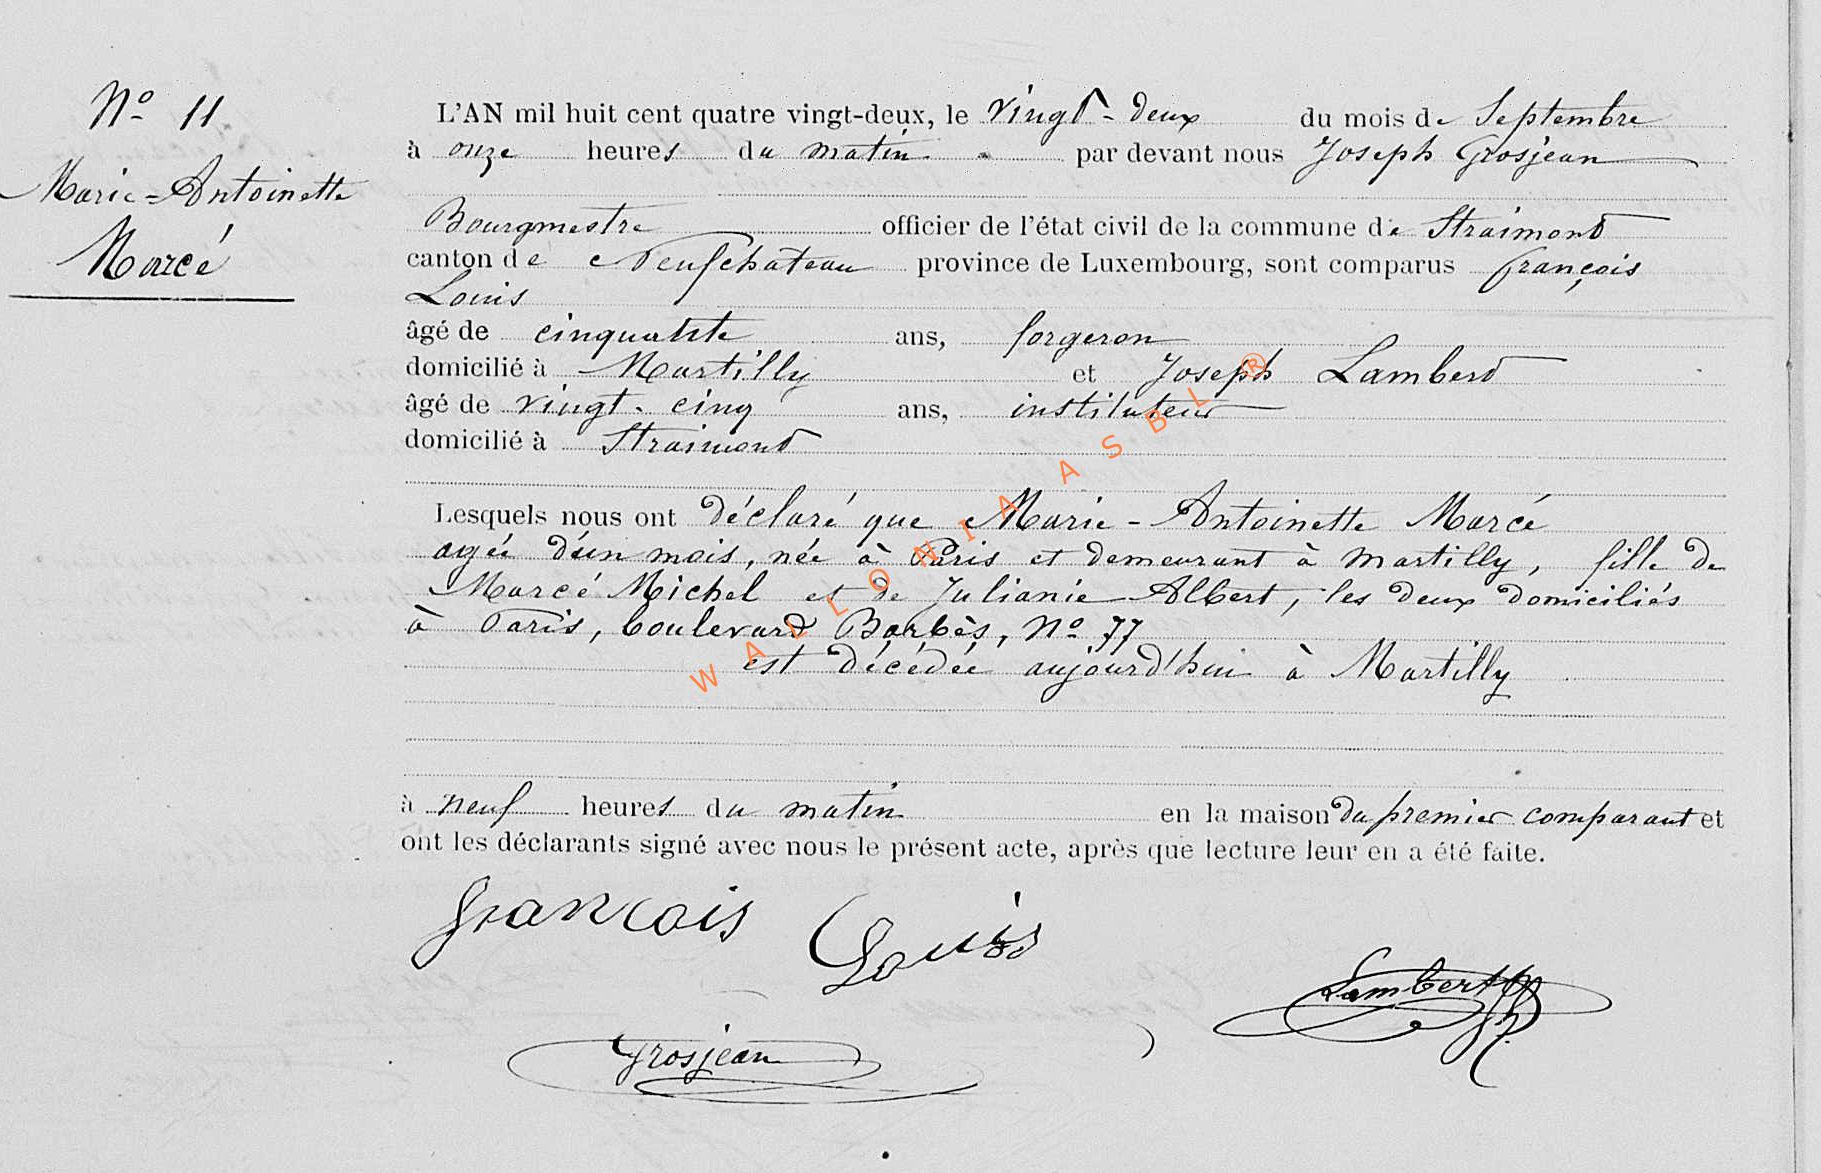 No 11
Marie-Antoinette
Marcé
L'AN mil huit cent quatre vingt-deux, le vingt-deux du mois de Septembre
à onze heures du matin par devant nous Joseph Grosjean
Bourgmestre officier de l'état civil de la commune de Straimont
canton de Neufchateau province de Luxembourg, sont comparus françois
Louis
âgé de cinquante ans, forgeron
domicilié à Martilly et Joseph Lambert
âgé de vingt-cinq ans, instituteur
domicilié à Straimont
Lesquels nous ont déclaré que Marie-Antoinette Marcé
agée d'un mois, née à Paris et demeurant à Martilly, fille de
Marcé Michel et de Julianie Albert, les deux domiciliés
à Paris, boulevard Barbès, No 77
est décédée aujourd'hui à Martilly
à neuf heures du matin en la maison du premier comparant et
ont les déclarants signé avec nous le présent acte, après que lecture leur en a été faite.
francois Louis
Lambert
Grosjean
WALLONIA ASBL ®